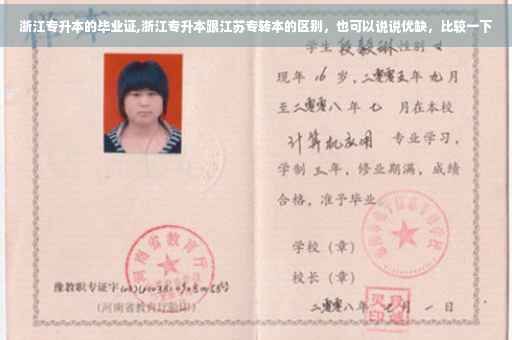 浙江专升本的毕业证,浙江专升本跟江苏专转本的区别，也可以说说优缺，比较一下
学生 段毅琳 性别 女
现年 16 岁，二零零五年 九月
至二零零八年 七 月在本校
计算机应用 专业学习，
学制 三年，修业期满，成绩
合格，准予毕业
学校（章）
校长（章）
河南省教育厅
豫教职专证字
（河南省教育厅验印）
二零零八年 七 月 一 日